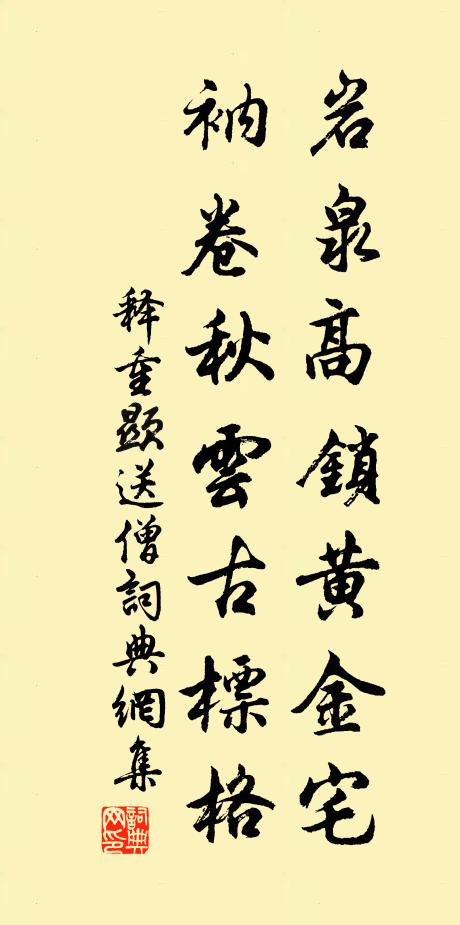 岩泉高鎖黄金宅
衲卷秋雲古標格
释重顯送僧詞典網集
詞典网印